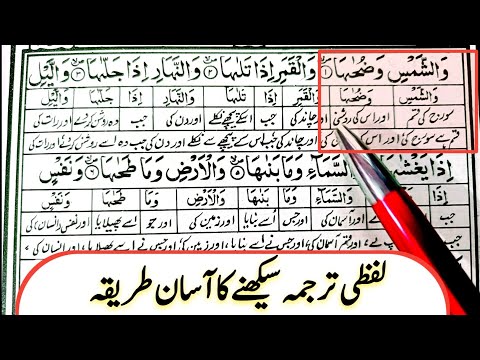 وَالشَّمْسِ وَضُحٰىهَا ۝۱ وَالْقَمَرِ اِذَا تَلٰىهَا ۝۲ وَالنَّهَارِ اِذَا جَلّٰىهَا ۝۳ وَالَّيْلِ
وَالشَّمْسِ وَضُحٰىهَا وَالْقَمَرِ اِذَا تَلٰىهَا وَالنَّهَارِ اِذَا جَلّٰىهَا وَالَّيْلِ
سورج کی قسم اور اس کی روشنی اور چاند کی جب اسکے پیچھے نکلے اور دن کی جب وہ روشن کرے اور رات کی
قسم ہے سورج کی اور اس کی کی اور چاند کی جب اس کے پیچھے سے نکلے اور دن کی جب وہ اسے روشن کرے اور رات کی
اِذَا يَغْشٰىهَا وَالسَّمَآءِ وَمَا بَنٰىهَا ۝۵ وَالْاَرْضِ وَمَا طَحٰىهَا ۝۶ وَنَفْسٍ
اِذَا وَالسَّمَآءِ وَمَا بَنٰىهَا وَالْاَرْضِ وَمَا طَحٰىهَا وَنَفْسٍ
جب اور آسمان کی اور جس اسے بنایا اور زمین کی اور جو اسے پھیلایا اور نفس (انسان) کی
لے اور قسم آسمان کی اور جس نے اسے بنایا، اور زمین کی اور جس نے اسے پھیلایا، اور انسان کی
لفظی ترجمہ سیکھنے کا آسان طریقہ